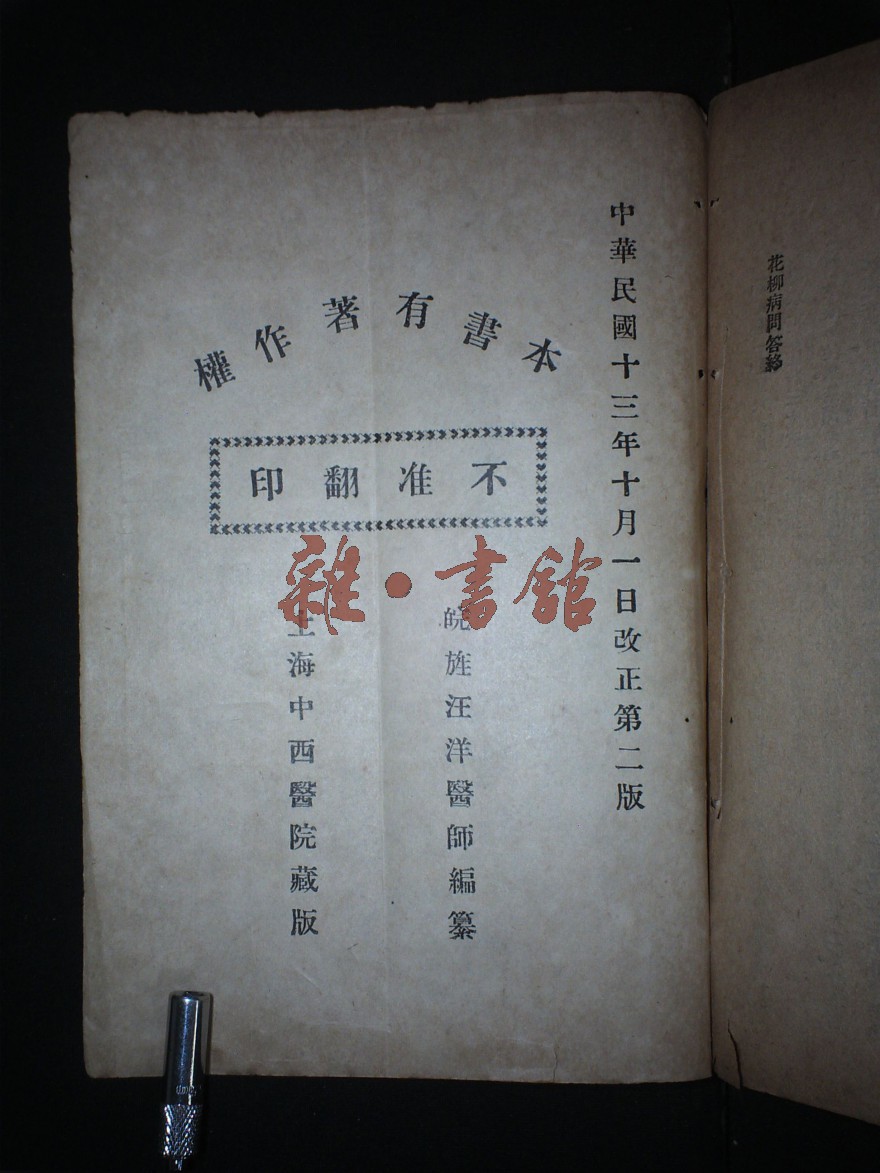 花柳病問答終
中華民國十三年十月一日改正第二版
本書有著作權
不准翻印
皖旌汪洋醫師編纂
上海中西醫院藏版
雜·書館